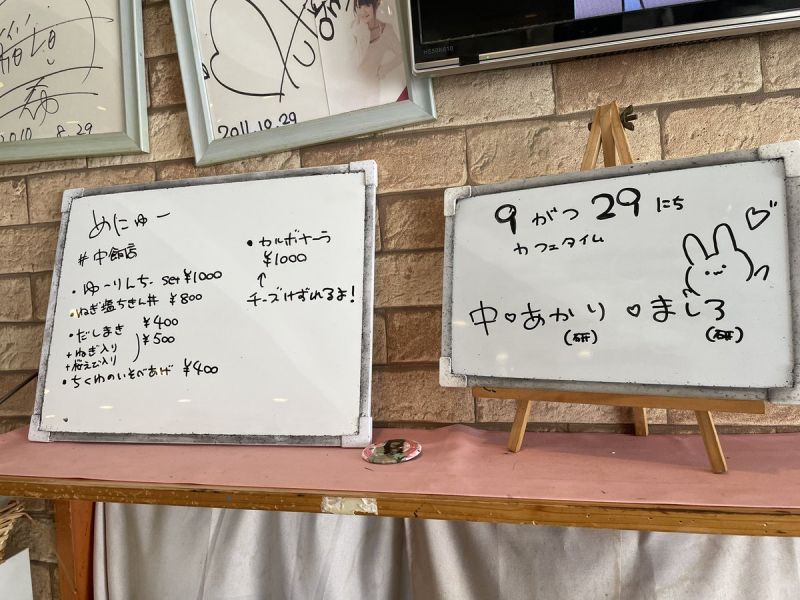 2010 8.29
2011.10.29
HS50K610
めにゅー
#中飯店
・ゆーりんちー set ¥1000
・ねぎ塩ちきん丼 ¥800
・だしまき ¥400
+ねぎ入り
+桜えび入り
¥500
・ちくわのいそべあげ ¥400
・カルボナーラ
¥1000
↑
チーズけずれるよ!
9がつ29にち
カフェタイム
中♡あかり♡ましろ
(研) (研)